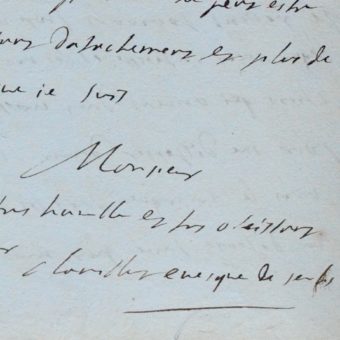 peus estre
d'atachement et plus de
que je suis
Monsieur
humble et tres obeissant
evesque de senlis